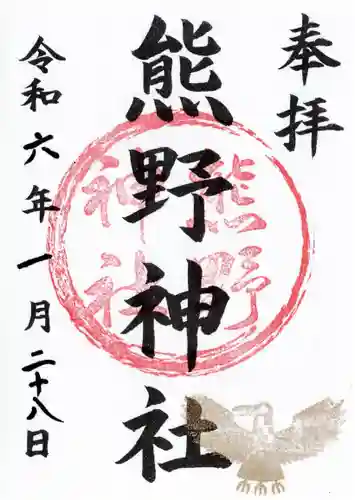 奉拝
熊野神社
熊野
神社
令和六年一月二十八日